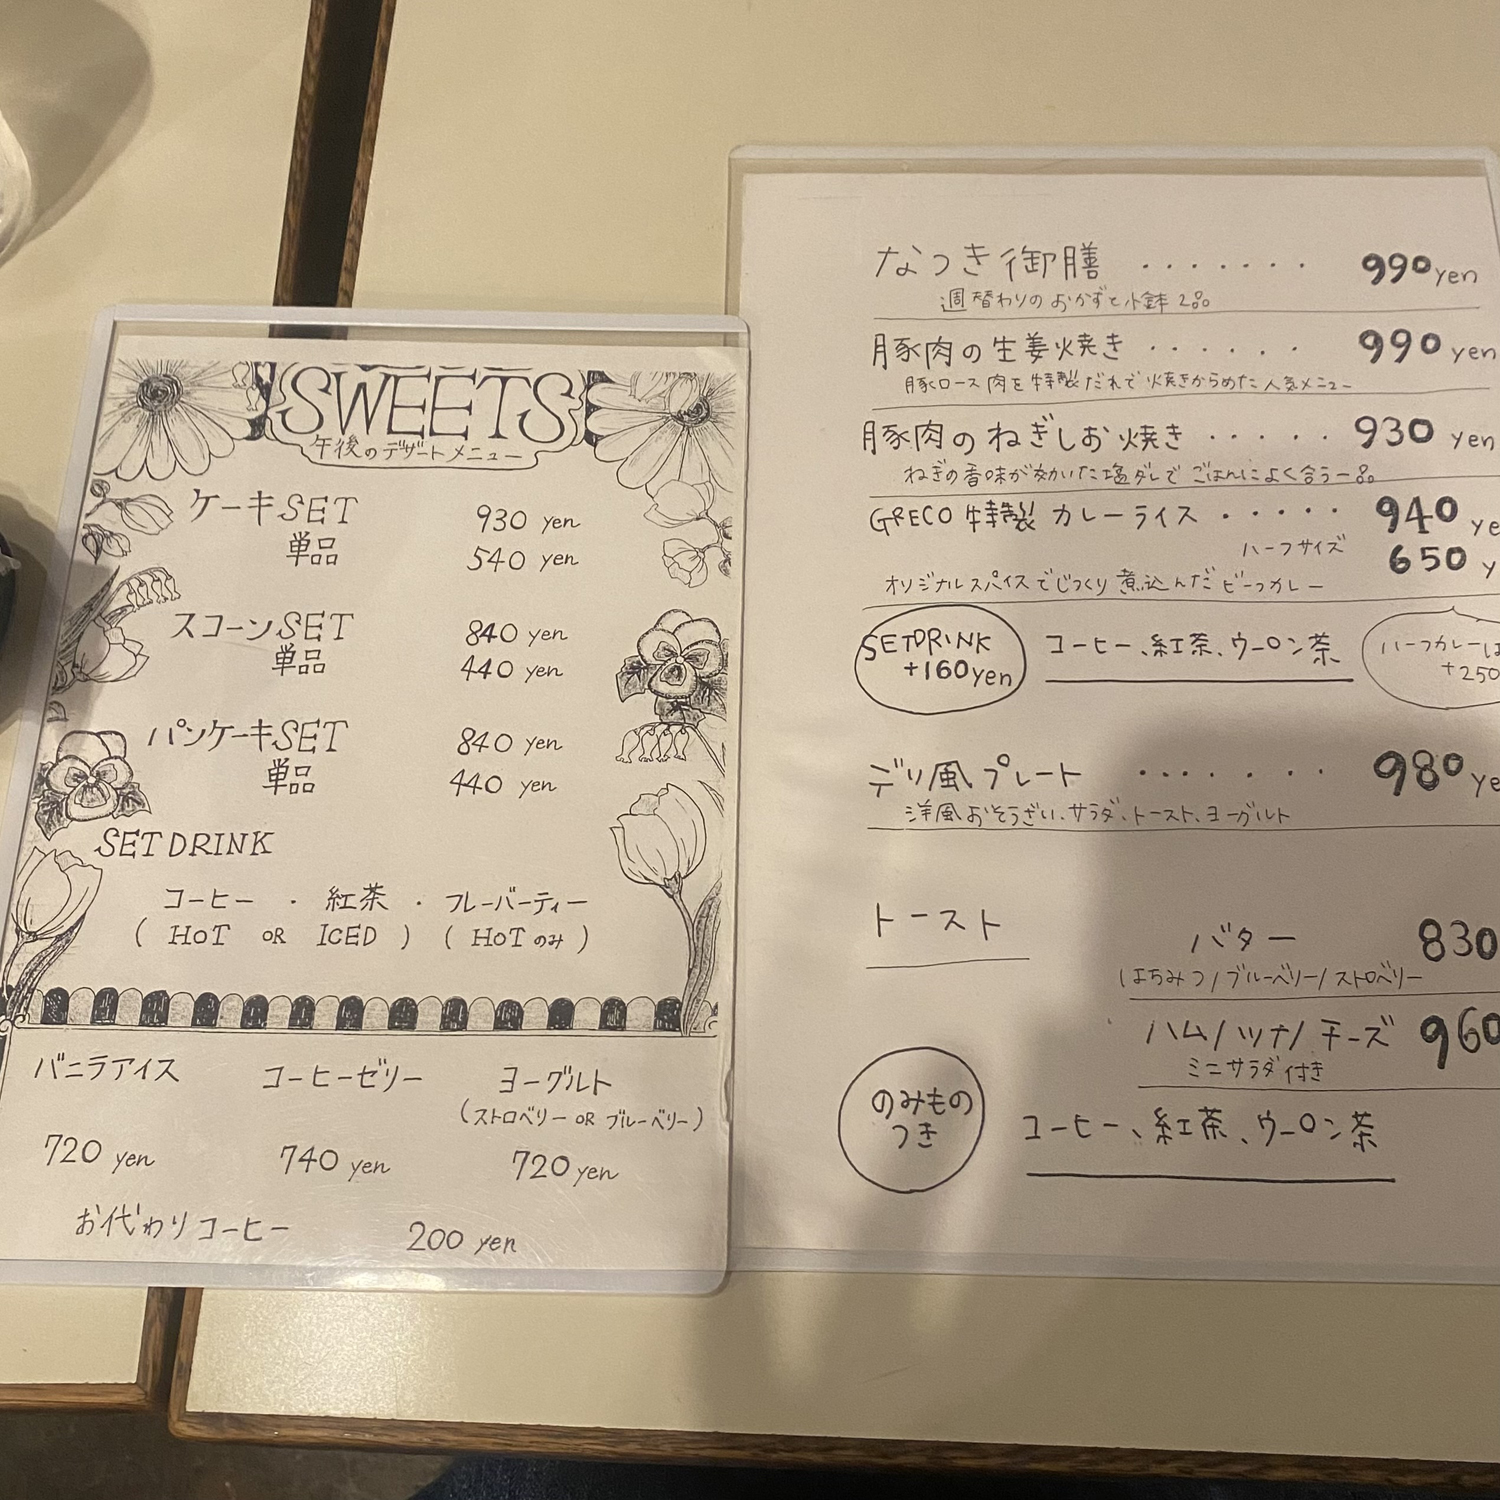 SWEETS
午後のデザートメニュー
ケーキSET 930 yen
単品 540 yen
スコーンSET 840 yen
単品 440 yen
パンケーキSET 840 yen
単品 440 yen
SET DRINK
コーヒー ・ 紅茶 ・ フレーバーティー
( HOT OR ICED ) ( HOT のみ )
バニラアイス コーヒーゼリー ヨーグルト
(ストロベリー OR ブルーベリー)
720 yen 740 yen 720 yen
お代わりコーヒー 200 yen
なつき御膳 ・・・・・・・ 990 yen
週替わりのおかずと小鉢2品
豚肉の生姜焼き ・・・・・・ 990 yen
豚ロース肉を特製だれで焼きからめた人気メニュー
豚肉のねぎしお焼き ・・・・・ 930 yen
ねぎの香味が効いた塩ダレでごはんによく合う一品
GRECO特製 カレーライス ・・・・・ 940 ye
ハーフサイズ 650 y
オリジナルスパイスでじっくり煮込んだビーフカレー
SETDRINK
+160yen
コーヒー、紅茶、ウーロン茶
ハーフカレーは
+250
デリ風プレート ・・・・・・・ 980 ye
洋風おそうざい、サラダ、トースト、ヨーグルト
トースト
バター 830
はちみつ/ブルーベリー/ストロベリー
ハム/ツナ/チーズ 960
ミニサラダ付き
のみもの
つき
コーヒー、紅茶、ウーロン茶